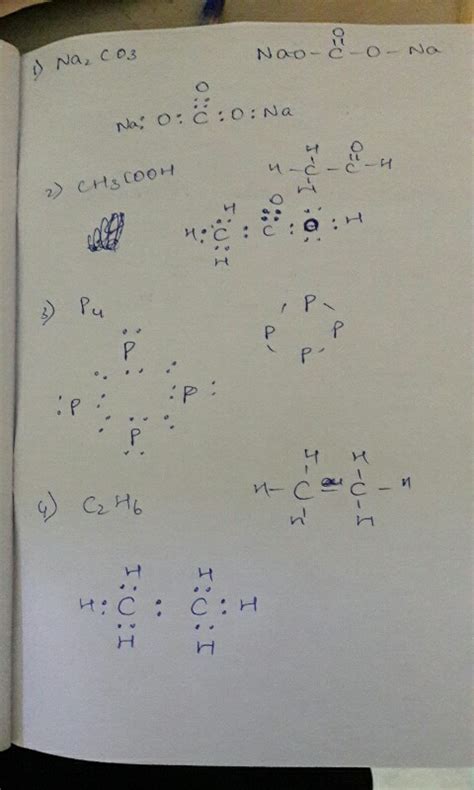 1) Na2CO3 NaO-C-O-Na
O
O
Na: O: C :O:Na
2) CH3COOH H-C-C-H
H O
H
H O
H: C : C : O : H
H
3) P4 P
P P
P
P
:P P:
P
4) C2H6 H-C-C-H
H H
H H
H H
H: C : C : H
H H